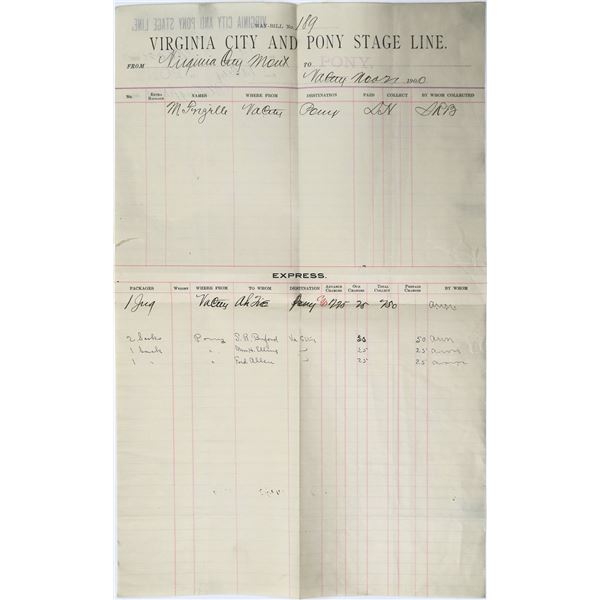 VIRGINIA CITY AND PONY STAGE LINE
WAY-BILL No. 189
VIRGINIA CITY AND PONY STAGE LINE.
FROM Virginia City Mont TO PONY,
Va City Nov 21 1900
No. EXTRA BAGGAGE NAMES WHERE FROM DESTINATION PAID COLLECT BY WHOM COLLECTED
Va City Pony DH
EXPRESS.
PACKAGES WEIGHT WHERE FROM TO WHOM DESTINATION ADVANCE CHARGES OUR CHARGES TOTAL COLLECT PREPAID CHARGES BY WHOM
1 Jug Va City Pony 25 250
2 Sacks Pony Buford Va City 50 50
1 Sack " Elling " 25 25
1 " " Allen " 25 25